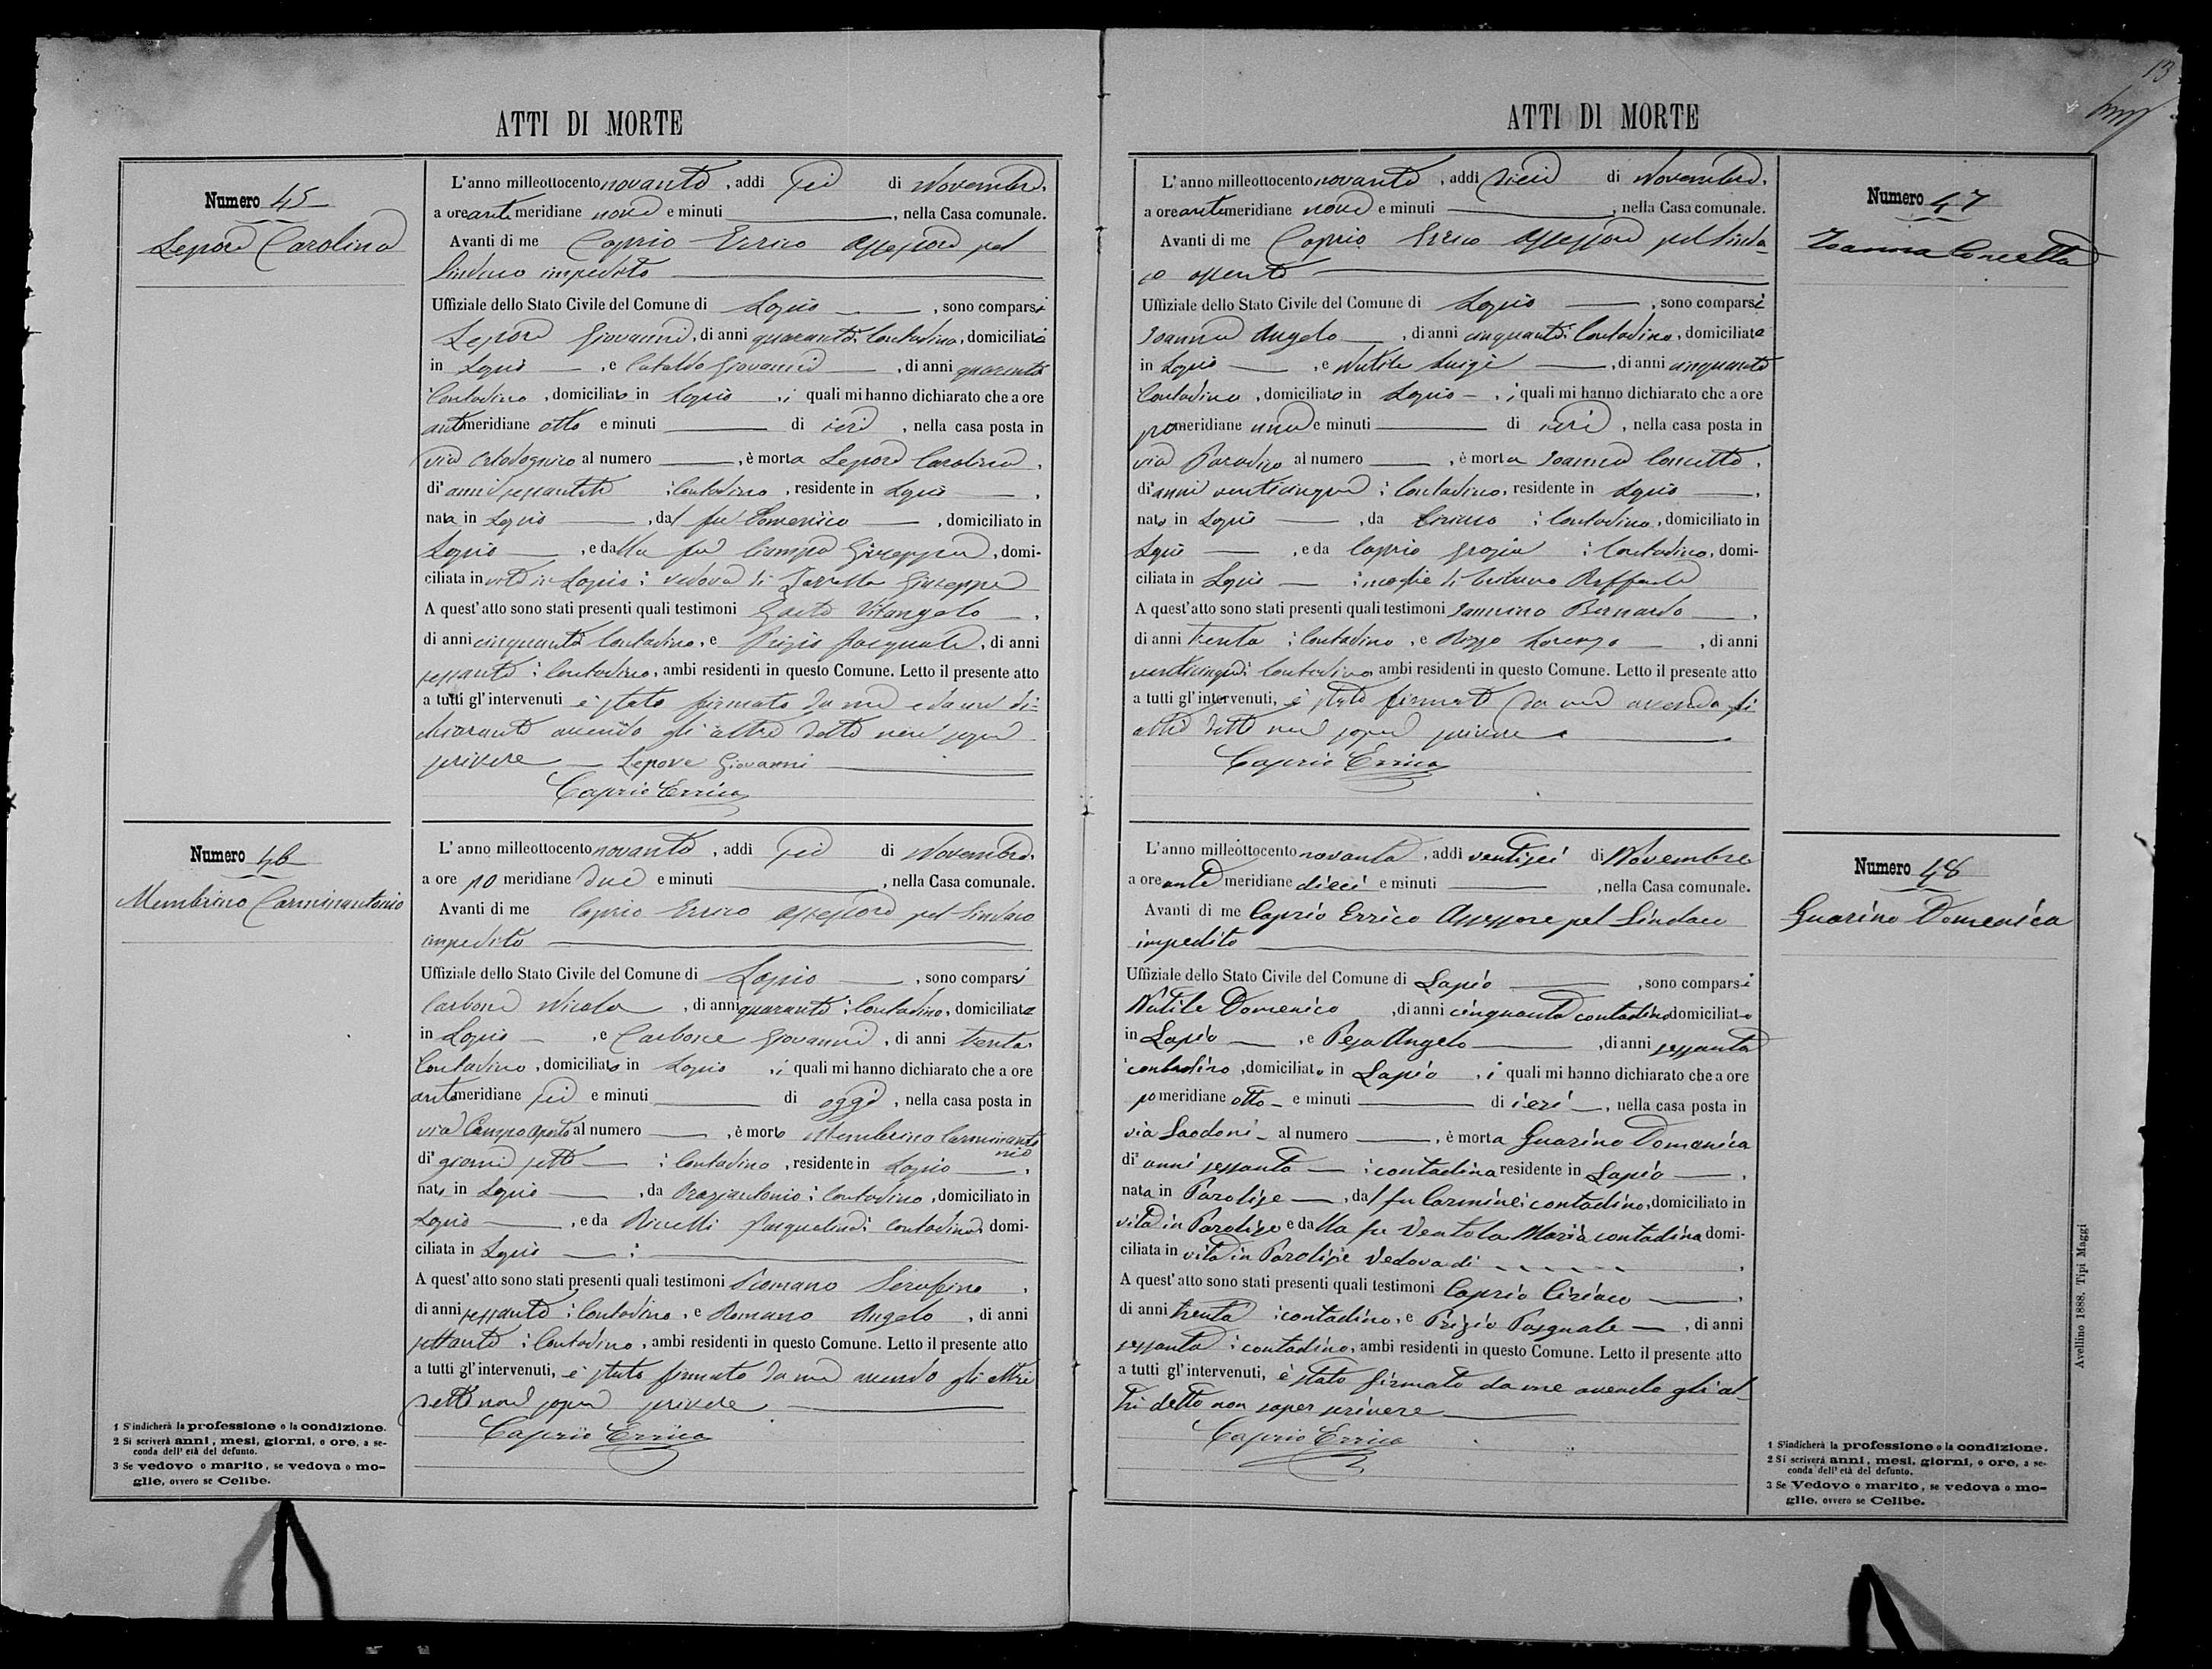 ATTI DI MORTE
Numero 45
Lepore Carolina
L'anno milleottocento novanta, addi sei di Novembre,
a ore anti meridiane nove e minuti ———, nella Casa comunale.
Avanti di me Caprio Errico Assessore pel
Sindaco impedito
Uffiziale dello Stato Civile del Comune di Lapio ——, sono comparsi
Lepore Giovanni, di anni quaranta: Contadino, domiciliato
in Lapio ——, e Cataldo Giovanni ——, di anni quaranta
Contadino, domiciliato in Lapio, i quali mi hanno dichiarato che a ore
antimeridiane otto e minuti ——— di ieri, nella casa posta in
via al numero ——, è morta Lepore Carolina,
di anni : Contadina, residente in Lapio ——,
nata in Lapio ——, dal fu Domenico ——, domiciliato in
Lapio ——, e dalla fu Ciampa Giuseppa, domi-
ciliata in vita in Lapio: vedova di Giuseppe
A quest'atto sono stati presenti quali testimoni Gaeta Vitangelo ——,
di anni cinquanta Contadino, e Prizio Pasquale, di anni
sessanta: Contadino, ambi residenti in questo Comune. Letto il presente atto
a tutti gl'intervenuti è stato firmato da me e da un di-
chiarante avendo gli altri detto non saper
scrivere — Lepore Giovanni
Caprio Errico
Numero 46
Membrino Carminantonio
L'anno milleottocento novanta, addi sei di Novembre,
a ore po meridiane due e minuti ———, nella Casa comunale.
Avanti di me Caprio Errico Assessore pel Sindaco
impedito
Uffiziale dello Stato Civile del Comune di Lapio ——, sono comparsi
Carbone Nicola, di anni quaranta: Contadino, domiciliato
in Lapio —, e Carbone Giovanni, di anni trenta
Contadino, domiciliato in Lapio, i quali mi hanno dichiarato che a ore
antimeridiane sei e minuti ——— di oggi, nella casa posta in
via Campo aperto al numero ——, è morto Membrino Carminanto
nio
di giorni sette — : Contadino, residente in Lapio ——,
nato in Lapio ——, da Oraziantonio: Contadino, domiciliato in
Lapio ——, e da Ricelli Pasqualina: contadina domi-
ciliata in Lapio —— :
A quest'atto sono stati presenti quali testimoni Serafino,
di anni sessanta: Contadino, e Romano Angelo, di anni
settanta: Contadino, ambi residenti in questo Comune. Letto il presente atto
a tutti gl'intervenuti, è stato firmato da me avendo gli altri
detto non saper scrivere
Caprio Errico
1 S'indicherà la professione o la condizione.
2 Si scriverà anni, mesi, giorni, o ore, a se-
conda dell'età del defunto.
3 Se vedovo o marito, se vedova o mo-
glie, ovvero se Celibe.
13
ATTI DI MORTE
Numero 47
Ioanna Concetta
L'anno milleottocento novanta, addi dieci di Novembre,
a ore antimeridiane nove e minuti ———, nella Casa comunale.
Avanti di me Caprio Errico Assessore pel Sinda-
co assente
Uffiziale dello Stato Civile del Comune di Lapio ——, sono comparsi
Ioanna Angelo ——, di anni cinquanta: Contadino, domiciliato
in Lapio ——, e Nutile Luigi ——, di anni cinquanta
Contadino, domiciliato in Lapio —, i quali mi hanno dichiarato che a ore
pomeridiane una e minuti ——— di ieri, nella casa posta in
via Paradiso al numero ——, è morta Ioanna Concetta,
di anni venticinque: Contadina, residente in Lapio ——,
nata in Lapio ——, da Ciriaco: Contadino, domiciliato in
Lapio ——, e da Caprio Grazia: Contadina, domi-
ciliata in Lapio — : moglie di Raffaele
A quest'atto sono stati presenti quali testimoni Iannino Bernardo ——,
di anni trenta: Contadino, e Rizzo Lorenzo ——, di anni
venticinque: Contadino, ambi residenti in questo Comune. Letto il presente atto
a tutti gl'intervenuti, è stato firmato da me avendo gli
altri detto non saper scrivere
Caprio Errico
Numero 48
Guarino Domenica
L'anno milleottocento novanta, addi ventisei di Novembre
a ore ante meridiane dieci e minuti ———, nella Casa comunale.
Avanti di me Caprio Errico Assessore pel Sindaco
impedito
Uffiziale dello Stato Civile del Comune di Lapio ——, sono comparsi
Nutile Domenico, di anni cinquanta contadino domiciliato
in Lapio ——, e Pesa Angelo ——, di anni sessanta
contadino, domiciliato in Lapio, i quali mi hanno dichiarato che a ore
pomeridiane otto — e minuti ——— di ieri —, nella casa posta in
via Saodoni — al numero ——, è morta Guarino Domenica
di anni sessanta — : contadina residente in Lapio ——,
nata in Parolise ——, dal fu Carmine: contadino, domiciliato in
vita in Parolise e dalla fu Ventola Maria contadina domi-
ciliata in vita in Parolise Vedova di
A quest'atto sono stati presenti quali testimoni Caprio Ciriaco ——,
di anni trenta: contadino, e Prizio Pasquale —, di anni
sessanta: contadino, ambi residenti in questo Comune. Letto il presente atto
a tutti gl'intervenuti, è stato firmato da me avendo gli al-
tri detto non saper scrivere
Caprio Errico
1 S'indicherà la professione o la condizione.
2 Si scriverà anni, mesi, giorni, o ore, a se-
conda dell'età del defunto.
3 Se Vedovo o marito, se vedova o mo-
glie, ovvero se Celibe.
Avellino 1888. Tipi Maggi